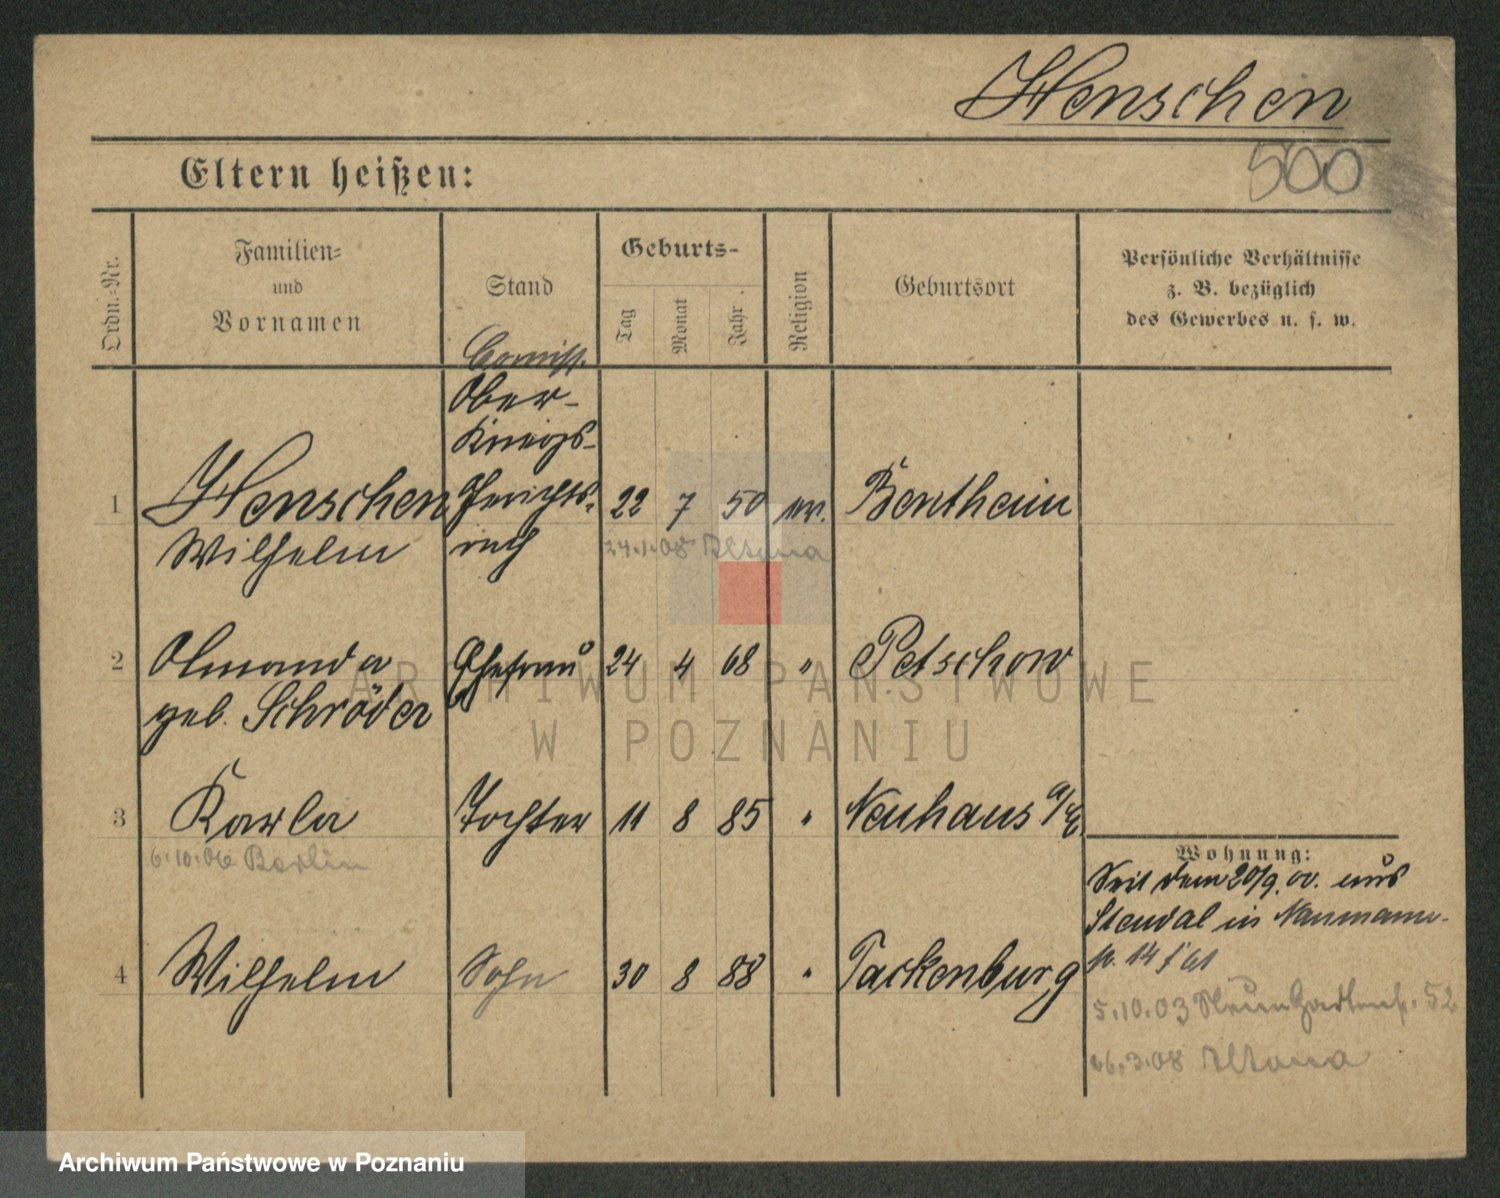 Henschen
500
Eltern heißen:
Ordn.-Nr.
Familien-
und
Vornamen
Stand
Geburts-
Tag
Monat
Jahr
Religion
Geburtsort
Persönliche Verhältnisse
z. B. bezüglich
des Gewerbes u. s. w.
Ober-
Kriegs-
1 Henschen Gerichts- 22 7 50 ev. Bentheim
Wilhelm rath 24.1.08 Altona
2 Amanda Ehefrau 24 4 68 " Petschow
geb. Schröder
3 Karla Tochter 11 8 85 " Neuhaus a/E
6.10.06 Berlin
4 Wilhelm Sohn 30 8 88 " Tackenburg
Wohnung:
Seit dem 20/9.00. aus
Stendal in Naumann-
str. 14
5.10.03 52
26.3.08 Altona
ARCHIWUM PAŃSTWOWE
W POZNANIU
Archiwum Państwowe w Poznaniu